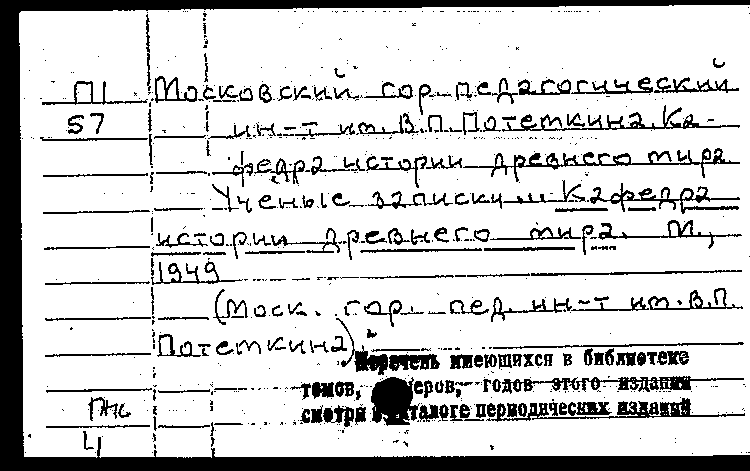 П1 Московский гор. педагогический
57 ин-т им. В.П. Потемкина. Ка-
федра истории древнего мира
Ученые записки ... Кафедра
истории древнего мира. М.,
1949
(Моск. гор. пед. ин-т им. В.П.
Потемкина).
Перечень имеющихся в библиотеке
томов, номеров, годов этого издания
смотри в каталоге периодических изданий